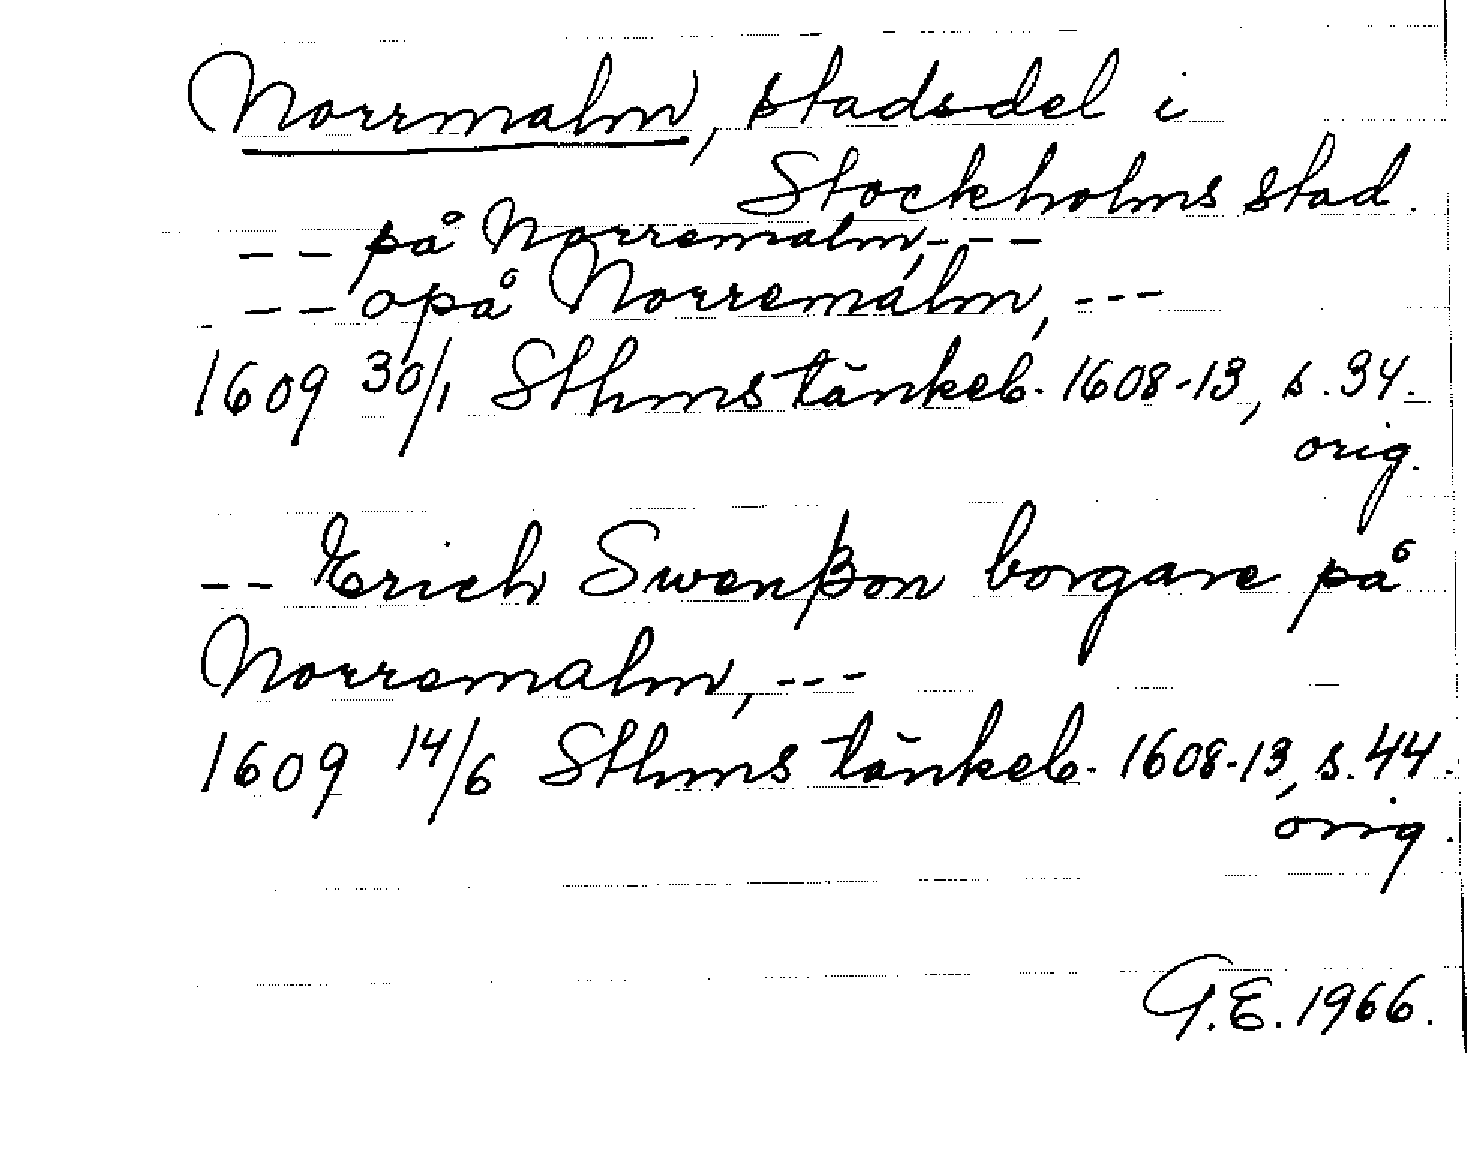 Norrmalm, stadsdel i
Stockholms stad.
-- på Norremalm, ---
-- opå Norremalm, ---
1609 30/1 Sthms tänkeb. 1608-13, s. 34.
orig.
-- Erich Swenßon borgare på
Norremalm, ---
1609 14/6 Sthms tänkeb. 1608-13, s. 44.
orig.
G.E. 1966.